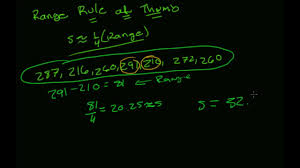 Range Rule of Thumb
s ≈ 1/4 (Range)
287, 216, 260, 291, 210, 272, 260
291 - 210 = 81 ← Range
81/4 = 20.25 ≈ s
s = 32.